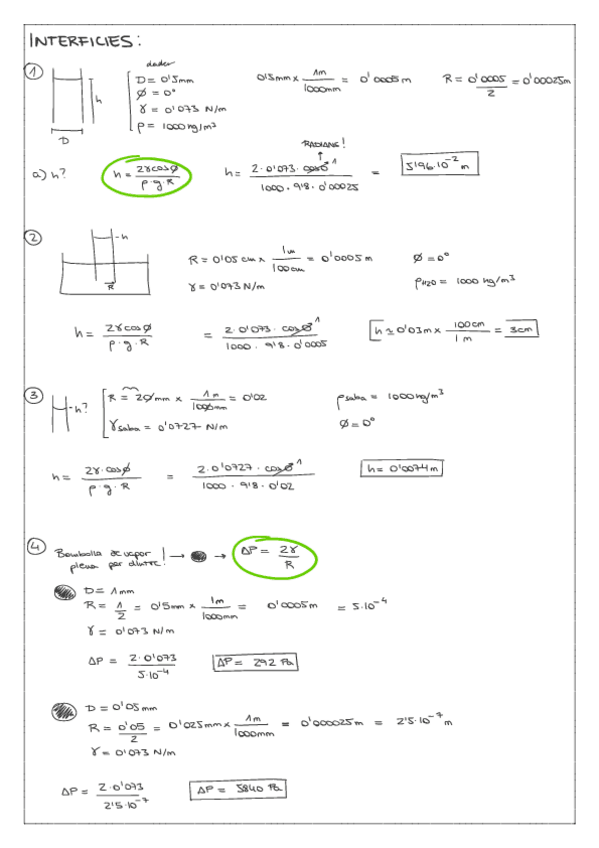 INTERFICIES:
1
dades
D = 0'5mm
φ = 0°
γ = 0'073 N/m
ρ = 1000 kg/m³
h
D
0'5mm × 1m/1000mm = 0'0005m
R = 0'0005/2 = 0'00025m
a) h?
h = 2γcosφ/ρ·g·R
RADIANS!
h = 2·0'073·cos0 1/1000·9'8·0'00025 = 5'96·10⁻² m
2
h
R
R = 0'05 cm × 1m/100cm = 0'0005m
φ = 0°
γ = 0'073 N/m
ρH2O = 1000 kg/m³
h = 2γcosφ/ρ·g·R = 2·0'073·cos0 1/1000·9'8·0'0005
h ≃ 0'03m × 100cm/1m = 3cm
3
h?
R = 20mm × 1m/1000mm = 0'02
ρsaba = 1000kg/m³
γsaba = 0'0727 N/m
φ = 0°
h = 2γ·cosφ/ρ·g·R = 2·0'0727·cos0 1/1000·9'8·0'02
h = 0'0074m
4
Bombolla de vapor
plena per dintre!
→ → ΔP = 2γ/R
D = 1mm
R = 1/2 = 0'5mm × 1m/1000mm = 0'0005m = 5·10⁻⁴
γ = 0'073 N/m
ΔP = 2·0'073/5·10⁻⁴
ΔP = 292 Pa
D = 0'05mm
R = 0'05/2 = 0'025mm × 1m/1000mm = 0'000025m = 2'5·10⁻⁷ m
γ = 0'073 N/m
ΔP = 2·0'073/2'5·10⁻⁷
ΔP = 5840 Pa